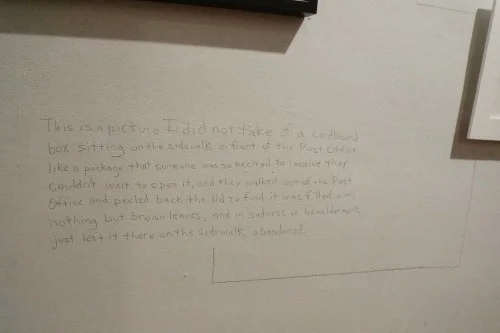 This is a picture I did not take of a cardboard
box sitting on the sidewalk in front of the Post Office
like a package that someone was so excited to receive they
couldn't wait to open it, and they walked out of the Post
Office and peeled back the lid to find it was filled with
nothing but brown leaves, and in sadness or bewilderment,
just left it there on the sidewalk, abandoned.